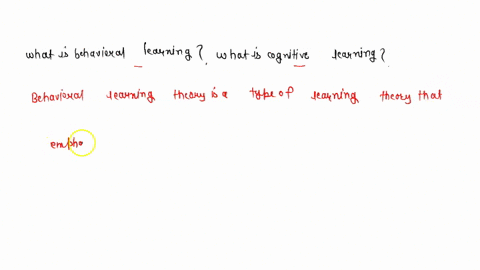 what is behavioral learning?, what is cognitive learning?
Behavioral learning theory is a type of learning theory that
empho